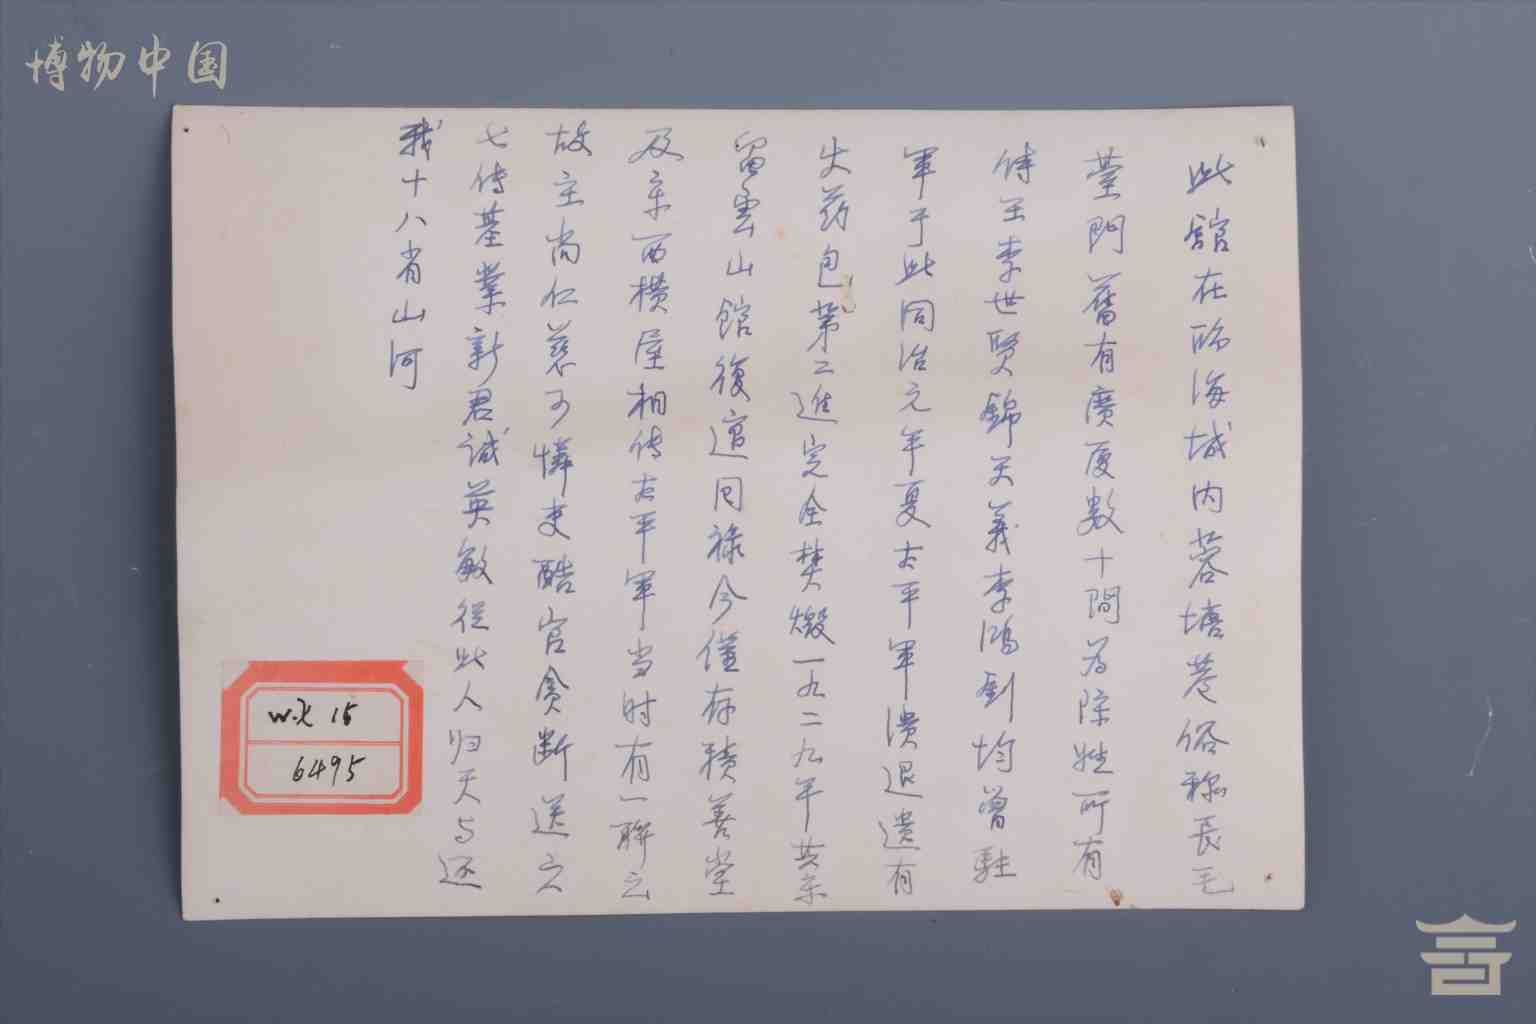 博物中国
此舘在临海城内蓉塘巷俗称長毛
臺門舊有廣厦数十間为陈姓所有
侍王李世贤錦天義李鴻釗均曾駐
軍于此同治元年夏太平軍潰退遺有
火药包第二進完全焚燬一九二九年共东
留雲山館復遭回禄今僅存積善堂
及东西横屋相传太平軍当时有一聯云
故主尚仁慈可憐吏酷官貪断送六
七传基業新君诚英敏從此人归天与还
我十八省山河
W.X 15
6495